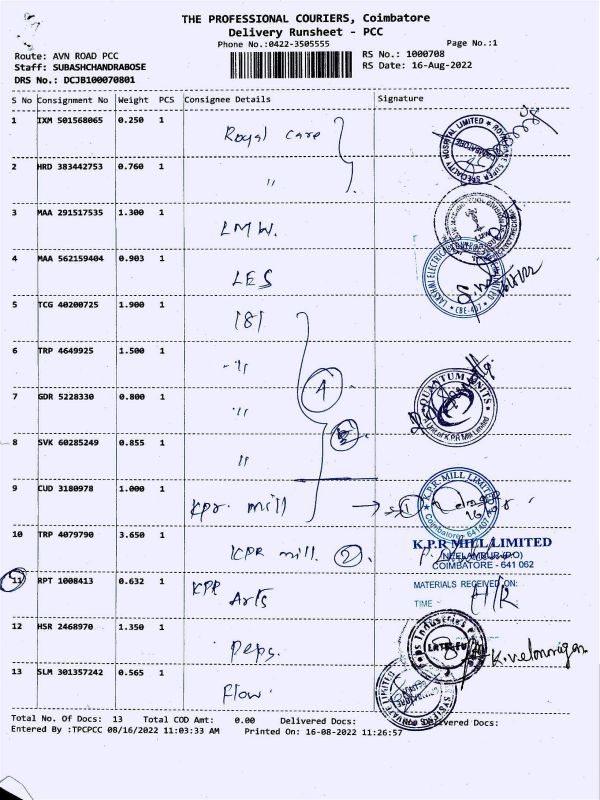 THE PROFESSIONAL COURIERS, Coimbatore
Delivery Runsheet - PCC
Phone No.:0422-3505555
Page No.:1
Route: AVN ROAD PCC
RS No.: 1000708
Staff: SUBASHCHANDRABOSE
RS Date: 16-Aug-2022
DRS No.: DCJB100070801
S No Consignment No Weight PCS Consignee Details Signature
1 IXM 501568065 0.250 1 Royal care
2 HRD 383442753 0.760 1 "
3 MAA 291517535 1.300 1 LMW.
4 MAA 562159404 0.903 1 LES
5 TCG 40200725 1.900 1 181
6 TRP 4649925 1.500 1 -"
7 GDR 5228330 0.800 1 "
8 SVK 60285249 0.855 1 "
4
QUANTUM KNITS
Unit of K.P.R Mill Limited
9 CUD 3180978 1.000 1 Kpr. mill → 1
K.P.R. MILL LIMITED
Coimbatore - 641407
10 TRP 4079790 3.650 1 KPR mill. 2.
K.P.R MILL LIMITED
NEELAMBUR (PO)
COIMBATORE - 641 062
11 RPT 1008413 0.632 1 KPR Arts
MATERIALS RECEIVED ON:
TIME
12 HSR 2468970 1.350 1 Peps.
13 SLM 301357242 0.565 1 Flow.
Total No. Of Docs: 13 Total COD Amt: 0.00 Delivered Docs: vered Docs:
Entered By :TPCPCC 08/16/2022 11:03:33 AM Printed On: 16-08-2022 11:26:57